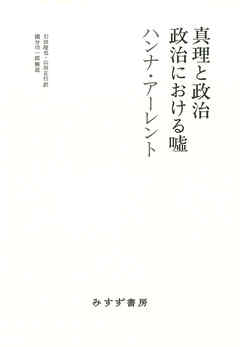 真理と政治
政治における嘘
ハンナ・アーレント
引田隆也・山田正行訳
國分功一郎解説
みすず書房